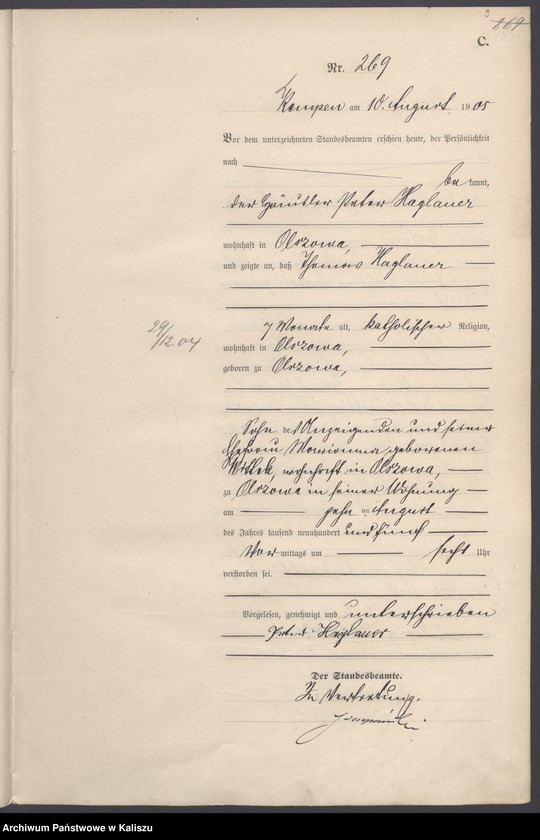 3
269
C.
Nr. 269
Kempen am 10. August 1905
Vor dem unterzeichneten Standesbeamten erschien heute, der Persönlichkeit
nach
be kannt,
der Häusler Peter Haglauer
wohnhaft in Olszowa,
und zeigte an, daß Thomas Haglauer
29/12.04
7 Monate alt, katholischer Religion,
wohnhaft in Olszowa,
geboren zu Olszowa,
Sohn des Anzeigenden und seiner
Ehefrau Marianna geborenen
wohnhaft in Olszowa,
zu Olszowa in seiner Wohnung
am zehn ten August
des Jahres tausend neunhundert und fünf
Vor mittags um sechs Uhr
verstorben sei.
Vorgelesen, genehmigt und unterschrieben
Peter Haglauer
Der Standesbeamte.
In Vertretung.
Archiwum Państwowe w Kaliszu